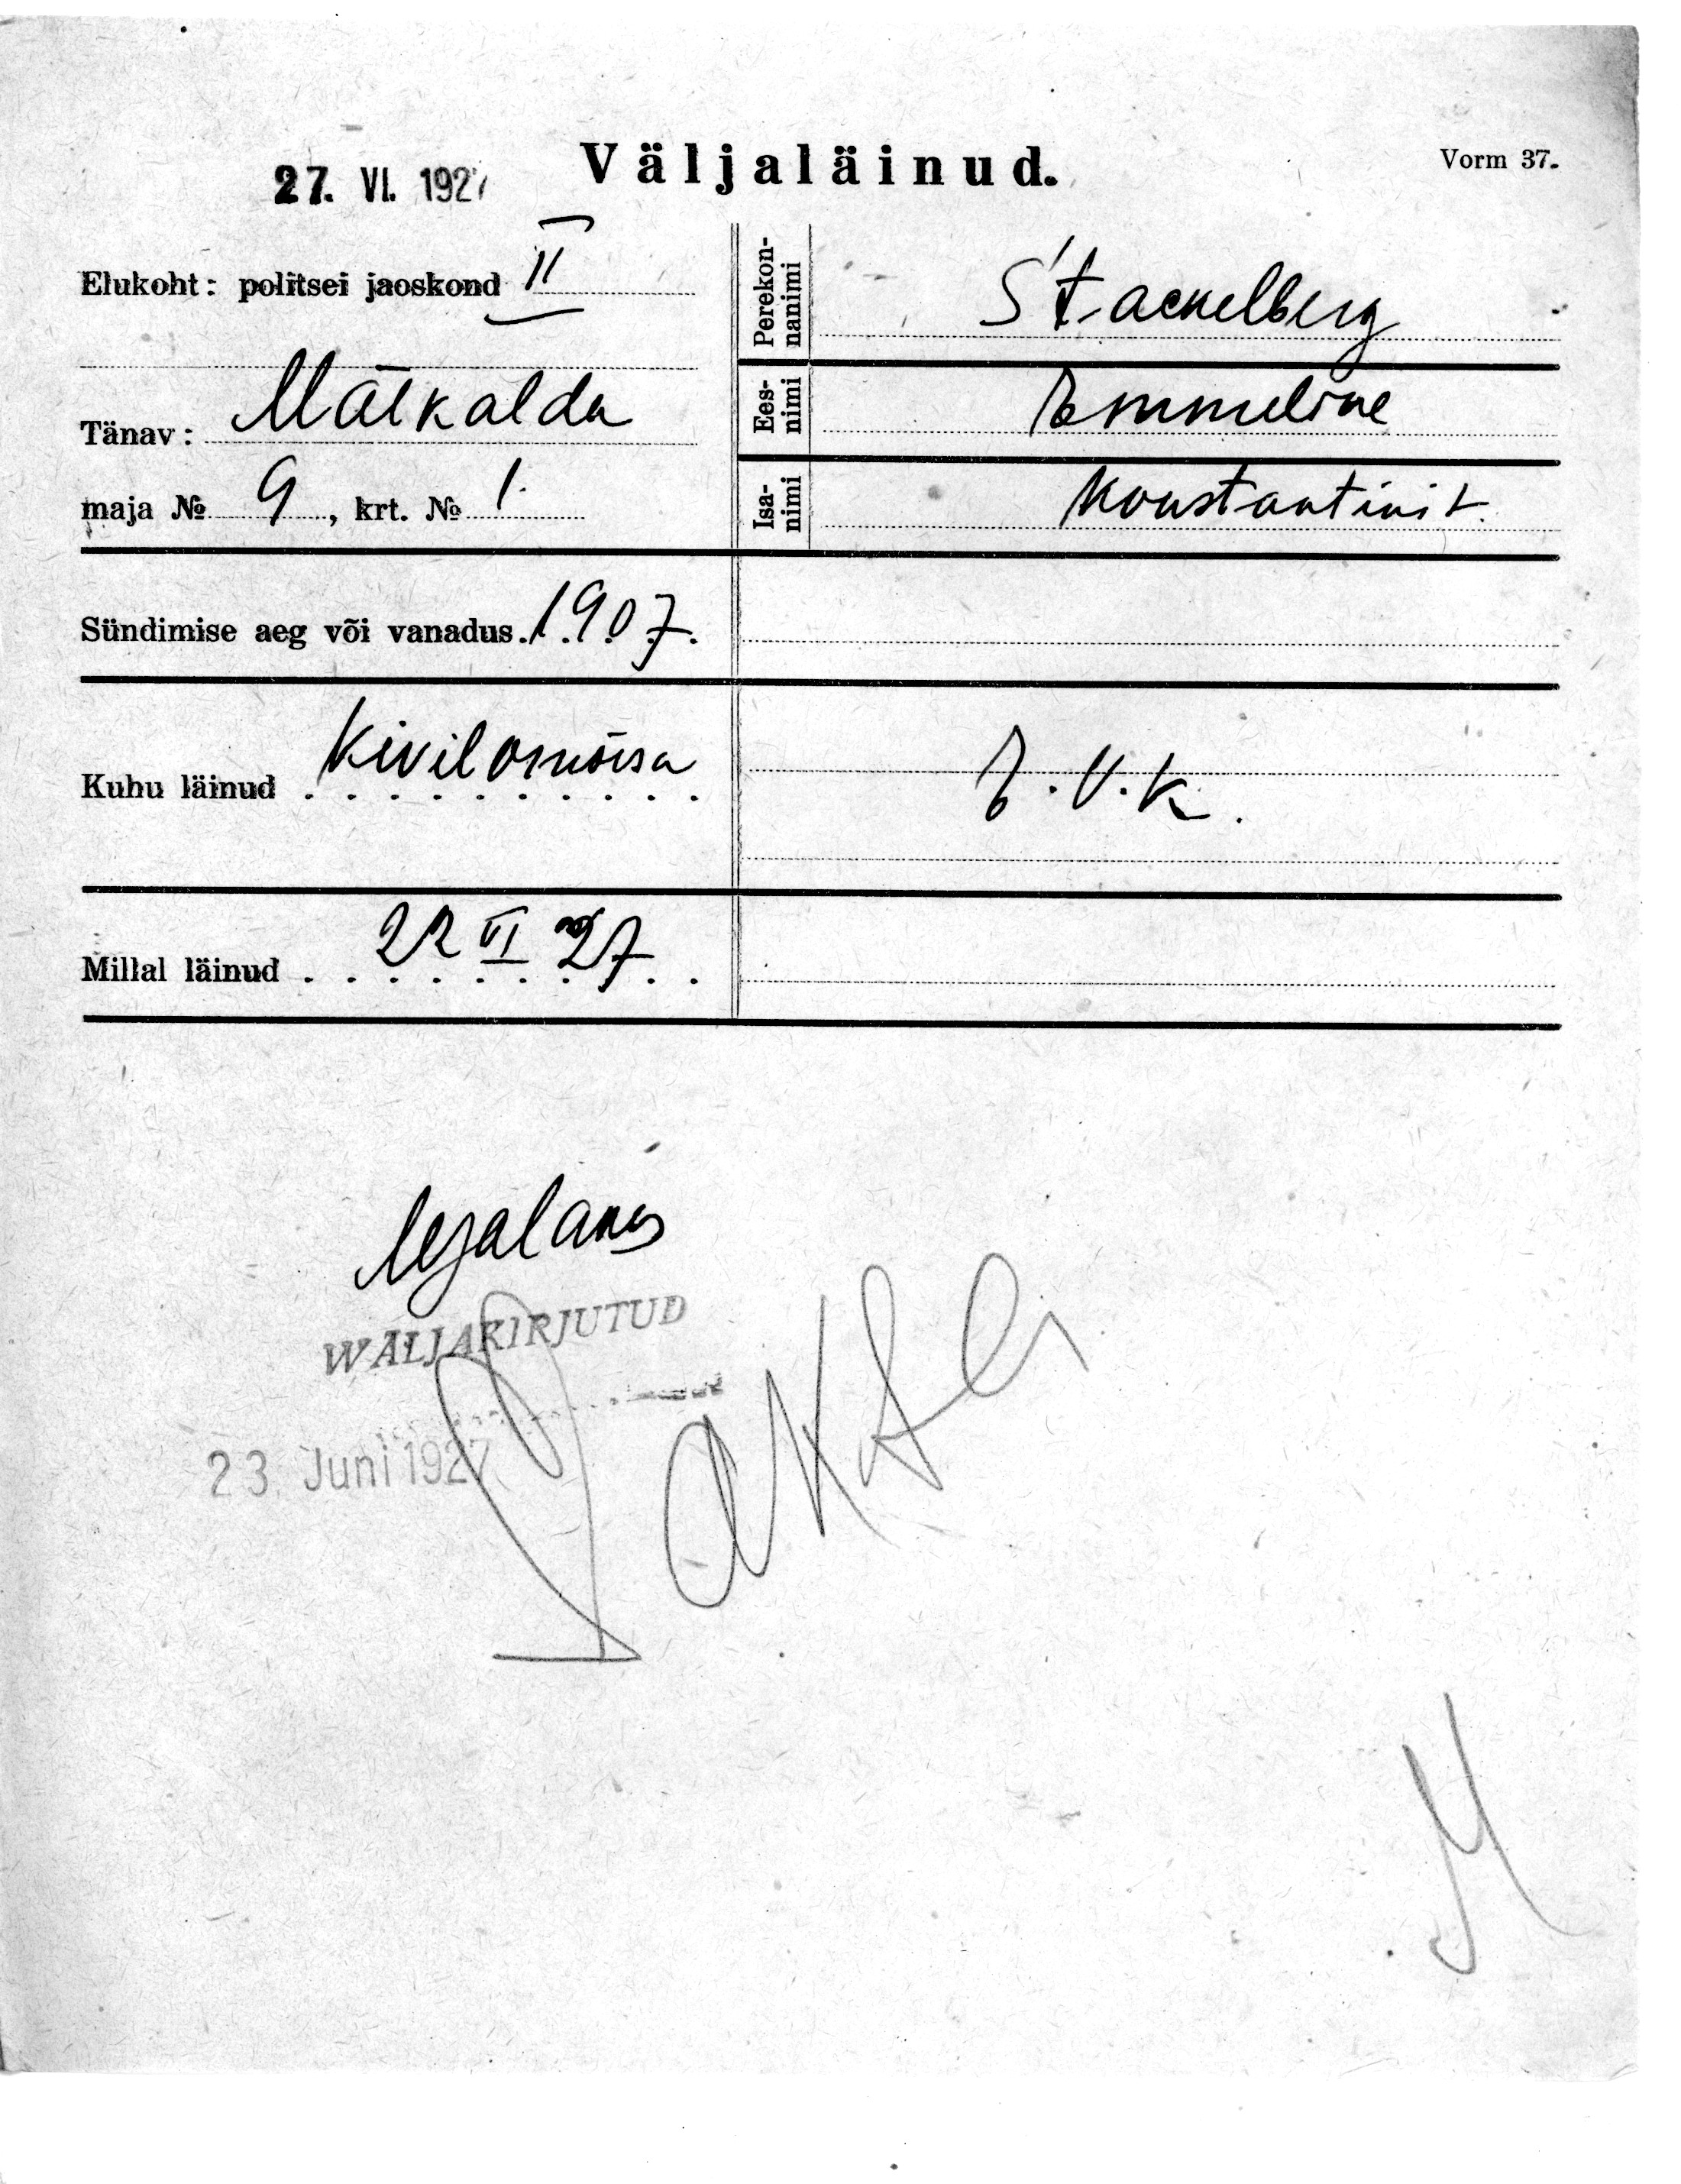 Väljaläinud.
Vorm 37.
27. VI. 1927
Elukoht: politsei jaoskond II
Tänav: Mäekalda
maja № 9, krt. № 1.
Perekonnanimi Stackelberg
Eesnimi Emmeline
Isanimi Konstantini t.
Sündimise aeg või vanadus. 1907.
Kuhu läinud Kiviloo mõisa
E.V.K.
Millal läinud 22 VI 27
WÄLJAKIRJUTUD
23. Juni 1927
M